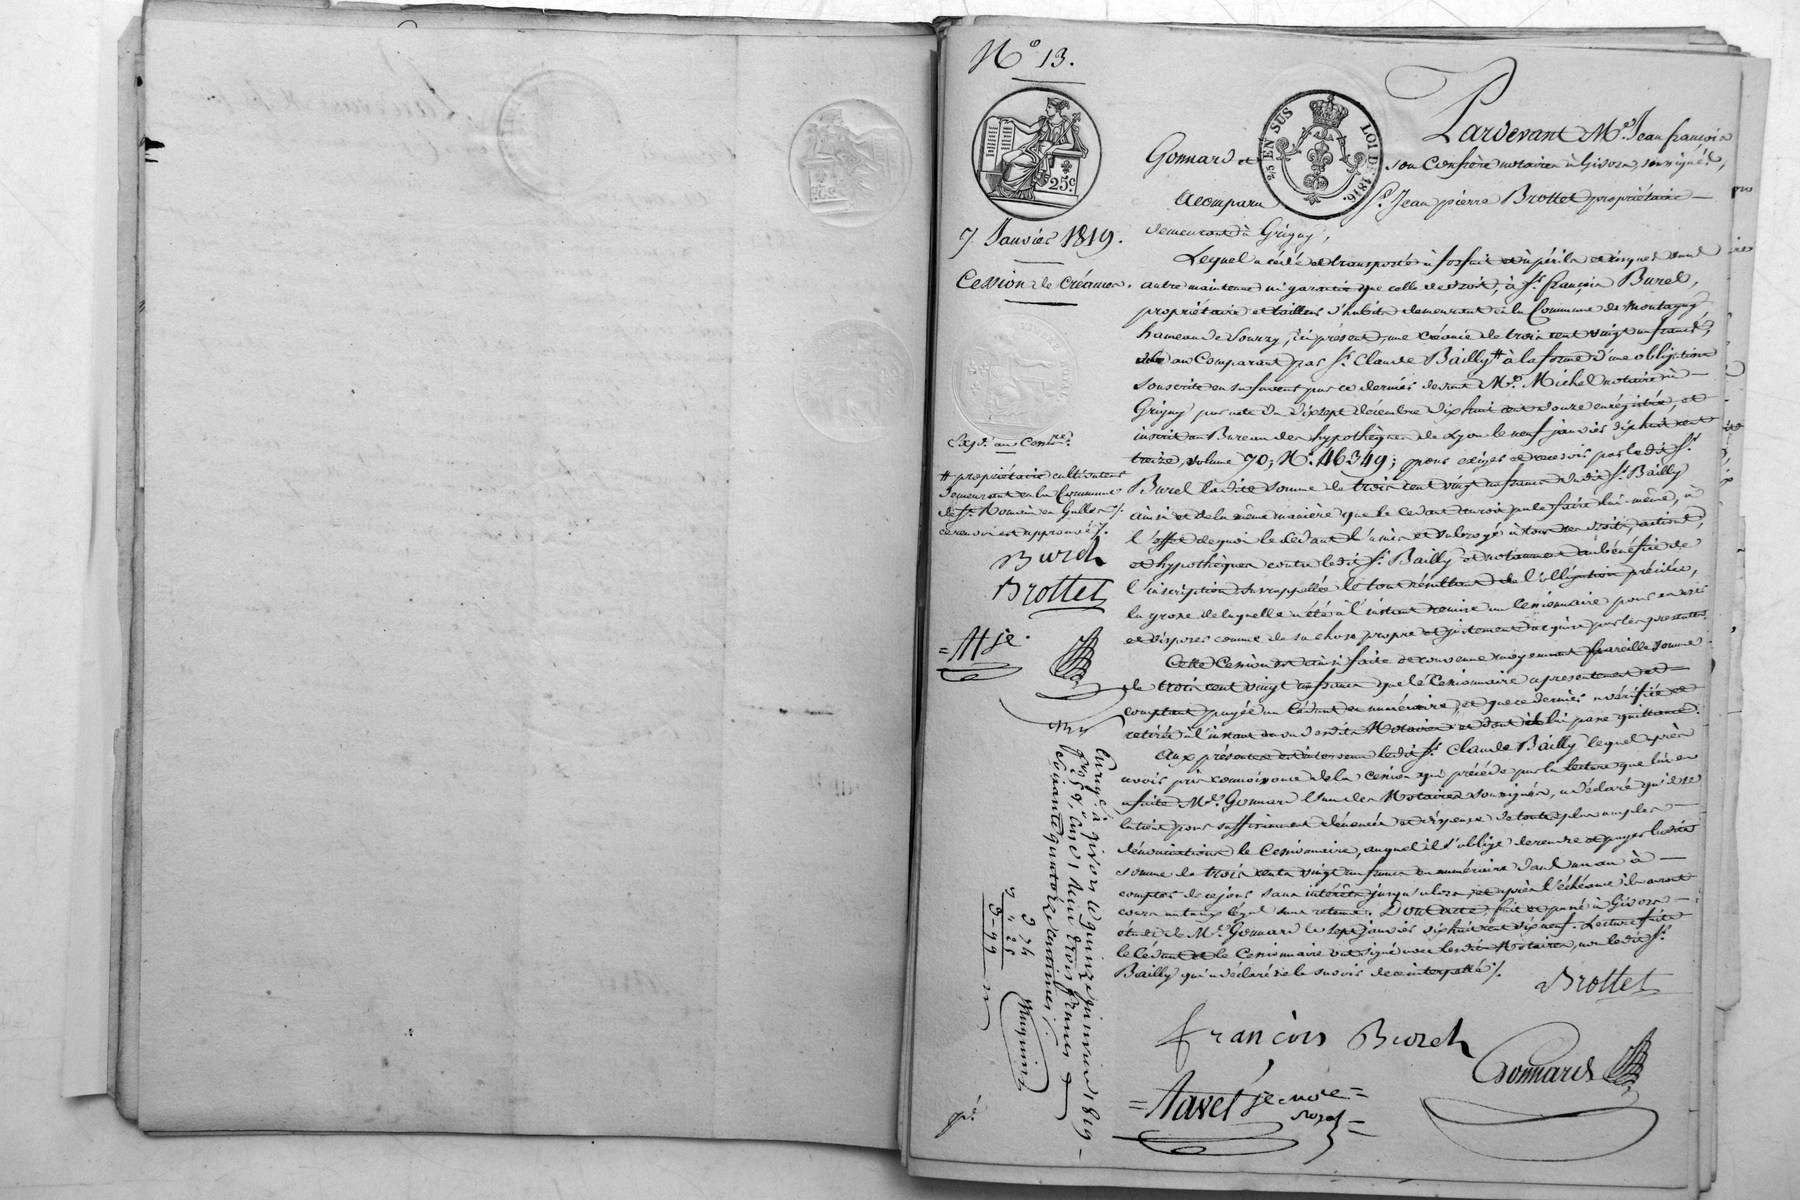 N.º 13.
25.c
25 EN SUS
LOI DE 1816.
7 Janvier 1819.
Cession de Créance.
Expé. au Cessre.
# propriétaire cultivateur
demeurant en la Commune
de St. Romain en Gallier /.
ce renvoi est approuvé /.
Burel
Brottet
= At je.
Enregé. à givors le quinze janvier 1819
fos 59, case 1. Reçu trois francs
soixante quatorze centimes.
3 74
" 25
3-99
Pardevant Me. Jean françois
Gonnard et son Confrère notaires à Givors, soussignés,
A comparu Sr. Jean pierre Brottet propriétaire
demeurant à Grigny,
Lequel a cédé et transporté à forfait et à périls et risques sans
autre maintenue ni garantie que celle de droit, à Sr. françois Burel,
propriétaire et tailleur d'habits demeurant en la Commune de Montagny
hameau de Sourzy, ici présent, une créance de trois cent vingt un francs,
due au Comparant par Sr. Claude Bailly # à la forme d'une obligation
souscrite en sa faveur par ce dernier devant Me. Michel notaire à
Grigny par acte du dix sept décembre dix huit cent douze enregistrée, et
inscrit au Bureau des hypothèques de Lyon le neuf janvier dix huit cent
treize, volume 70, N.º 46349; pour exiger et recevoir par le dit Sr.
Burel la dite somme de trois cent vingt un francs du dit Sr. Bailly
ainsi et de la même manière que le Cédant auroit pu le faire lui-même, à
l'effet de quoi le Cédant l'a mis et subrogé à tous ses droits, actions,
et hypothèques contre le dit Sr. Bailly et notamment au bénéfice de
l'inscription susrappellée le tout résultant de l'obligation précitée,
la grosse de laquelle a été à l'instant remise au Cessionnaire pour en user
et disposer comme de sa chose propre et justement acquise par les présentes.
Cette Cession est ainsi faite de convenue moyennant pareille somme
de trois cent vingt un francs que le Cessionnaire a présentement et
comptant payée au Cédant en numéraire, et que ce dernier a vérifiée et
retirée à l'instant au vu des dits Notaires et dont il lui passe quittance.
Aux présentes est intervenu le dit Sr. Claude Bailly lequel après
avoir pris connoissance de la cession qui précède par la lecture que lui en
a faite Me. Gonnard l'un des Notaires soussignés, a déclaré qu'il se
la tient pour suffisamment dénoncée et dispense de toute plus ample
dénonciation le Cessionnaire, auquel il s'oblige de rendre et payer la dite
somme de trois cents vingt un francs en numéraire dans un an à
compter de ce jour sans intérêts jusqu'alors, et après l'échéance ils auront
cours au taux légal sans retenue. Dont acte, fait et passé à Givors
étude de Me. Gonnard le sept janvier dix huit cent dix neuf. Lecture faite
le Cédant et le Cessionnaire ont signé avec les dits Notaires, non le dit Sr.
Bailly qui a déclaré ne le savoir de ce interpellé /.
Brottet
françois Burel
Gonnard